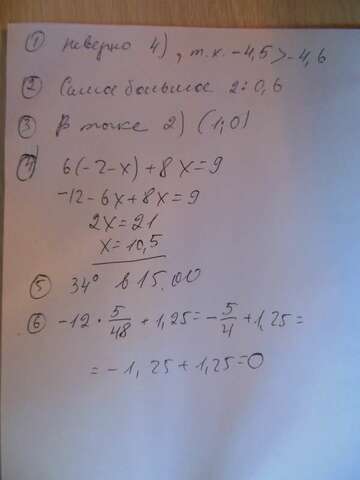 ① неверно 4), т.к. -4,5 > -4,6
② Самая большая 2:0,6
③ В точке 2) (1,0)
④ 6(-2-x)+8x=9
-12-6x+8x=9
2x=21
x=10,5
⑤ 34° в 15.00
⑥ -12 · 5/48 + 1,25 = -5/4 + 1,25 =
= -1,25 + 1,25 = 0